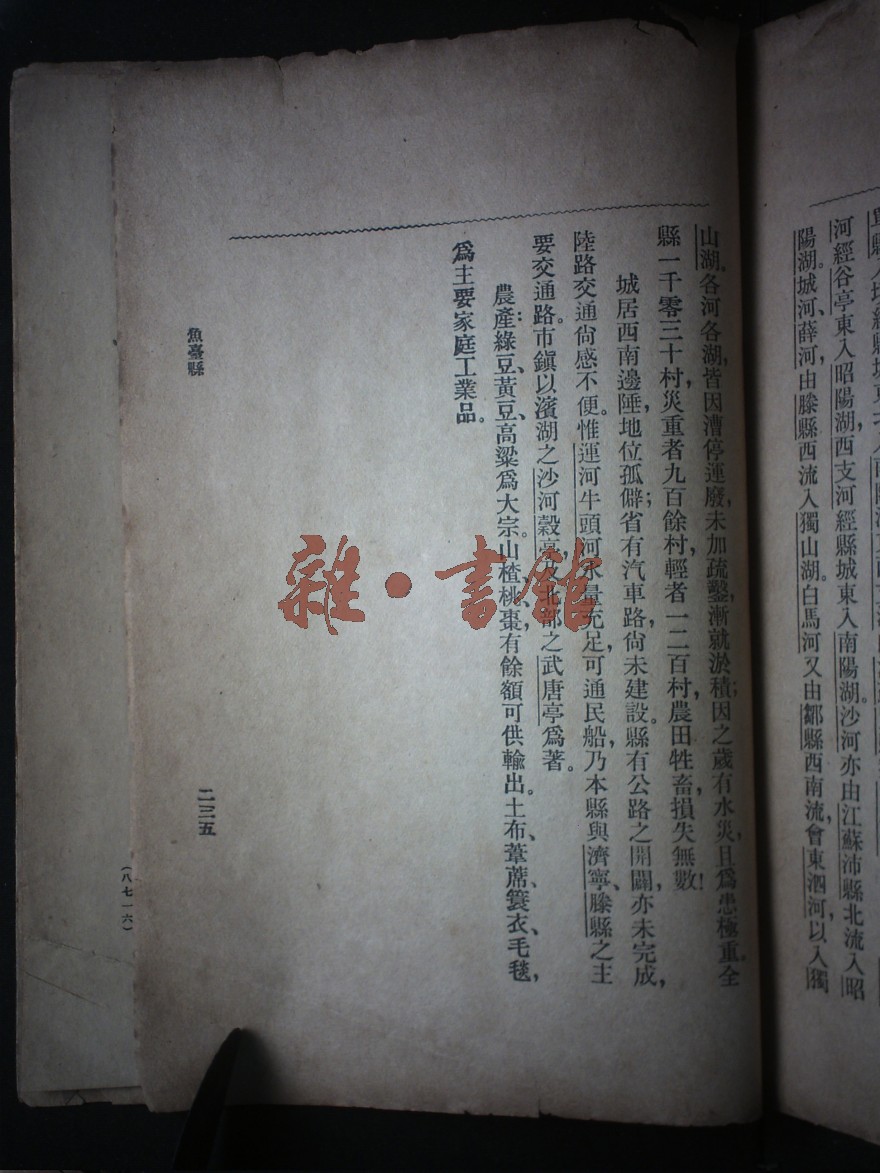 河經谷亭東入昭陽湖，西支河經縣城東入南陽湖。沙河亦由江蘇沛縣北流入昭
陽湖。城河、薛河，由滕縣西流入獨山湖。白馬河又由鄒縣西南流，會東泗河，以入獨
山湖。各河各湖，皆因漕停運廢，未加疏鑿，漸就淤積；因之歲有水災，且爲患極重。全
縣一千零三十村，災重者九百餘村，輕者一二百村，農田牲畜，損失無數！
城居西南邊陲，地位孤僻；省有汽車路，尙未建設。縣有公路之開闢，亦未完成，
陸路交通尙感不便。惟運河牛頭河水量充足，可通民船，乃本縣與濟寧、滕縣之主
要交通路。市鎭以濱湖之沙河穀亭，及北部之武唐亭爲著。
農產：綠豆、黃豆、高粱爲大宗。山楂、桃、棗，有餘額可供輸出。土布、葦蓆、簑衣、毛毯，
爲主要家庭工業品。
魚臺縣
二三五
（八七一六）
雜·書館